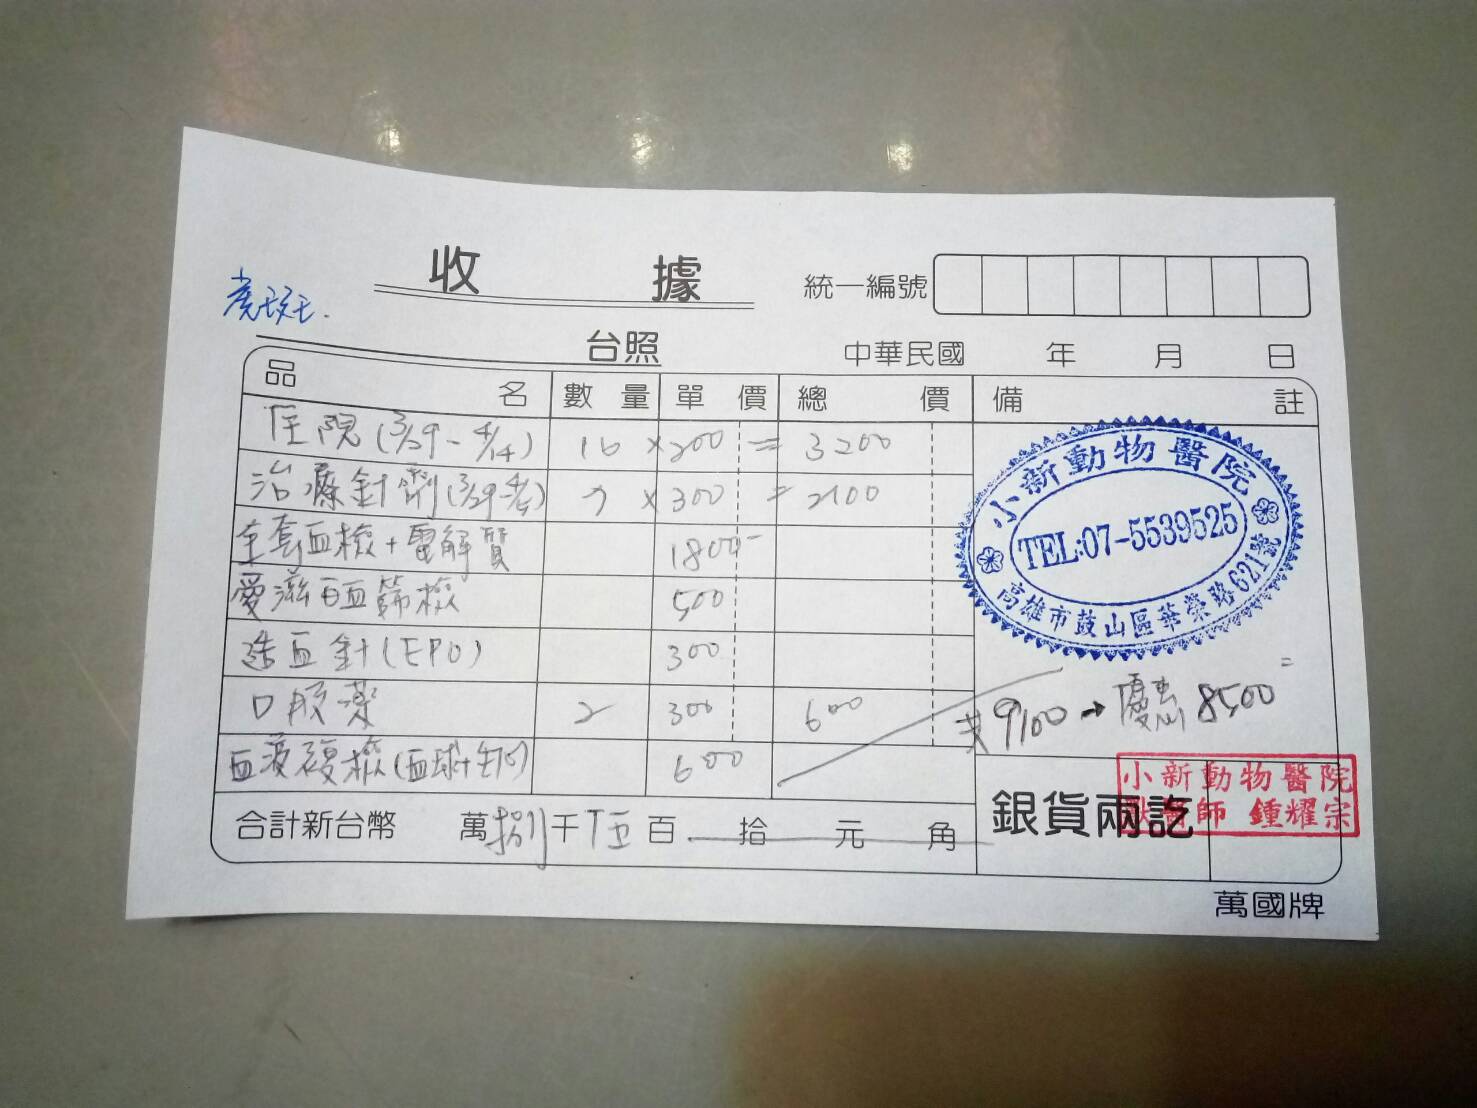 收 據
統一編號
台照
中華民國 年 月 日
品 名 數 量 單 價 總 價 備 註
住院 (3/29 - 4/14) 16 × 200 = 3200
治療針劑 (3/29 - 4/) 7 × 300 = 2100
全套血檢 + 電解質 1800-
愛滋白血篩檢 500
造血針 (EPO) 300
口服藥 2 300 600
血液複檢 (血球+ ) 600
小新動物醫院
TEL:07-5539525
高雄市鼓山區華榮路621號
共 9100 → 優惠 8500
合計新台幣 萬 捌 千 伍 百 拾 元 角
銀貨兩訖
小新動物醫院
獸醫師 鍾耀宗
萬國牌